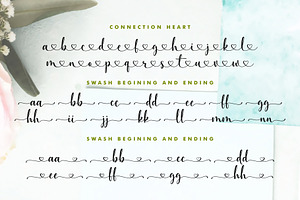 CONNECTION HEART
abcdefghijkle
mnopqrestuvw
SWASH BEGINING AND ENDING
aa bb cc dd ee ff gg
hh ii jj kk ll mm nn
SWASH BEGINING AND ENDING
aa bb cc dd
ee ff gg hh